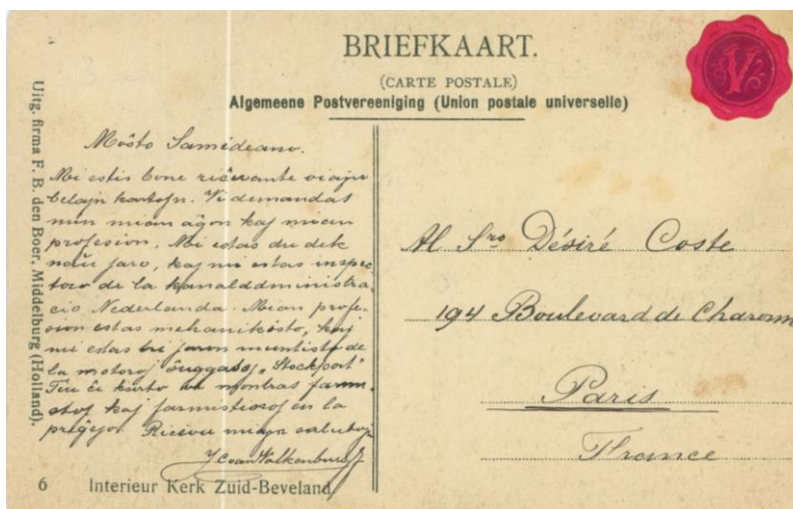 BRIEFKAART.
(CARTE POSTALE)
Algemeene Postvereeniging (Union postale universelle)
V
Uitg. firma F. B. den Boer, Middelburg (Holland).
Moŝto Samideano.
Mi estis bone ricevante viajn
belajn kartojn. Vi demandas
min mian aĝon kaj mian
profesion. Mi estas du dek
naŭ jaro, kaj mi estas inspec
toro de la kanaladdministra
cio Nederlanda. Mian profe-
sion estas mehanikisto, kaj
mi estas tri jaron muntisto de
la motoroj "Stockport"
Tiu ĉi karto montras farm-
istoj kaj farmistinoj en la
preĝejo. miajn salutojn
J C van Valkenburg
6 Interieur Kerk Zuid-Beveland
Al Sro Désiré Coste
194 Boulevard de Charonne
Paris
France